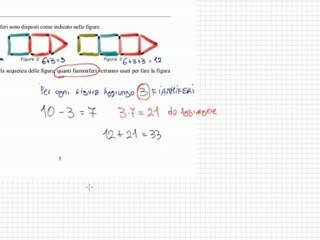 iferi sono disposti come indicato nelle figure.
Figura 2 6+3=9 Figura 3 6+3+3=12
la sequenza delle figure, quanti fiammiferi verranno usati per fare la figura
Per ogni figura Aggiungo 3 FIAMMIFERI
10-3=7 3·7=21 da Aggiungere
12+21=33